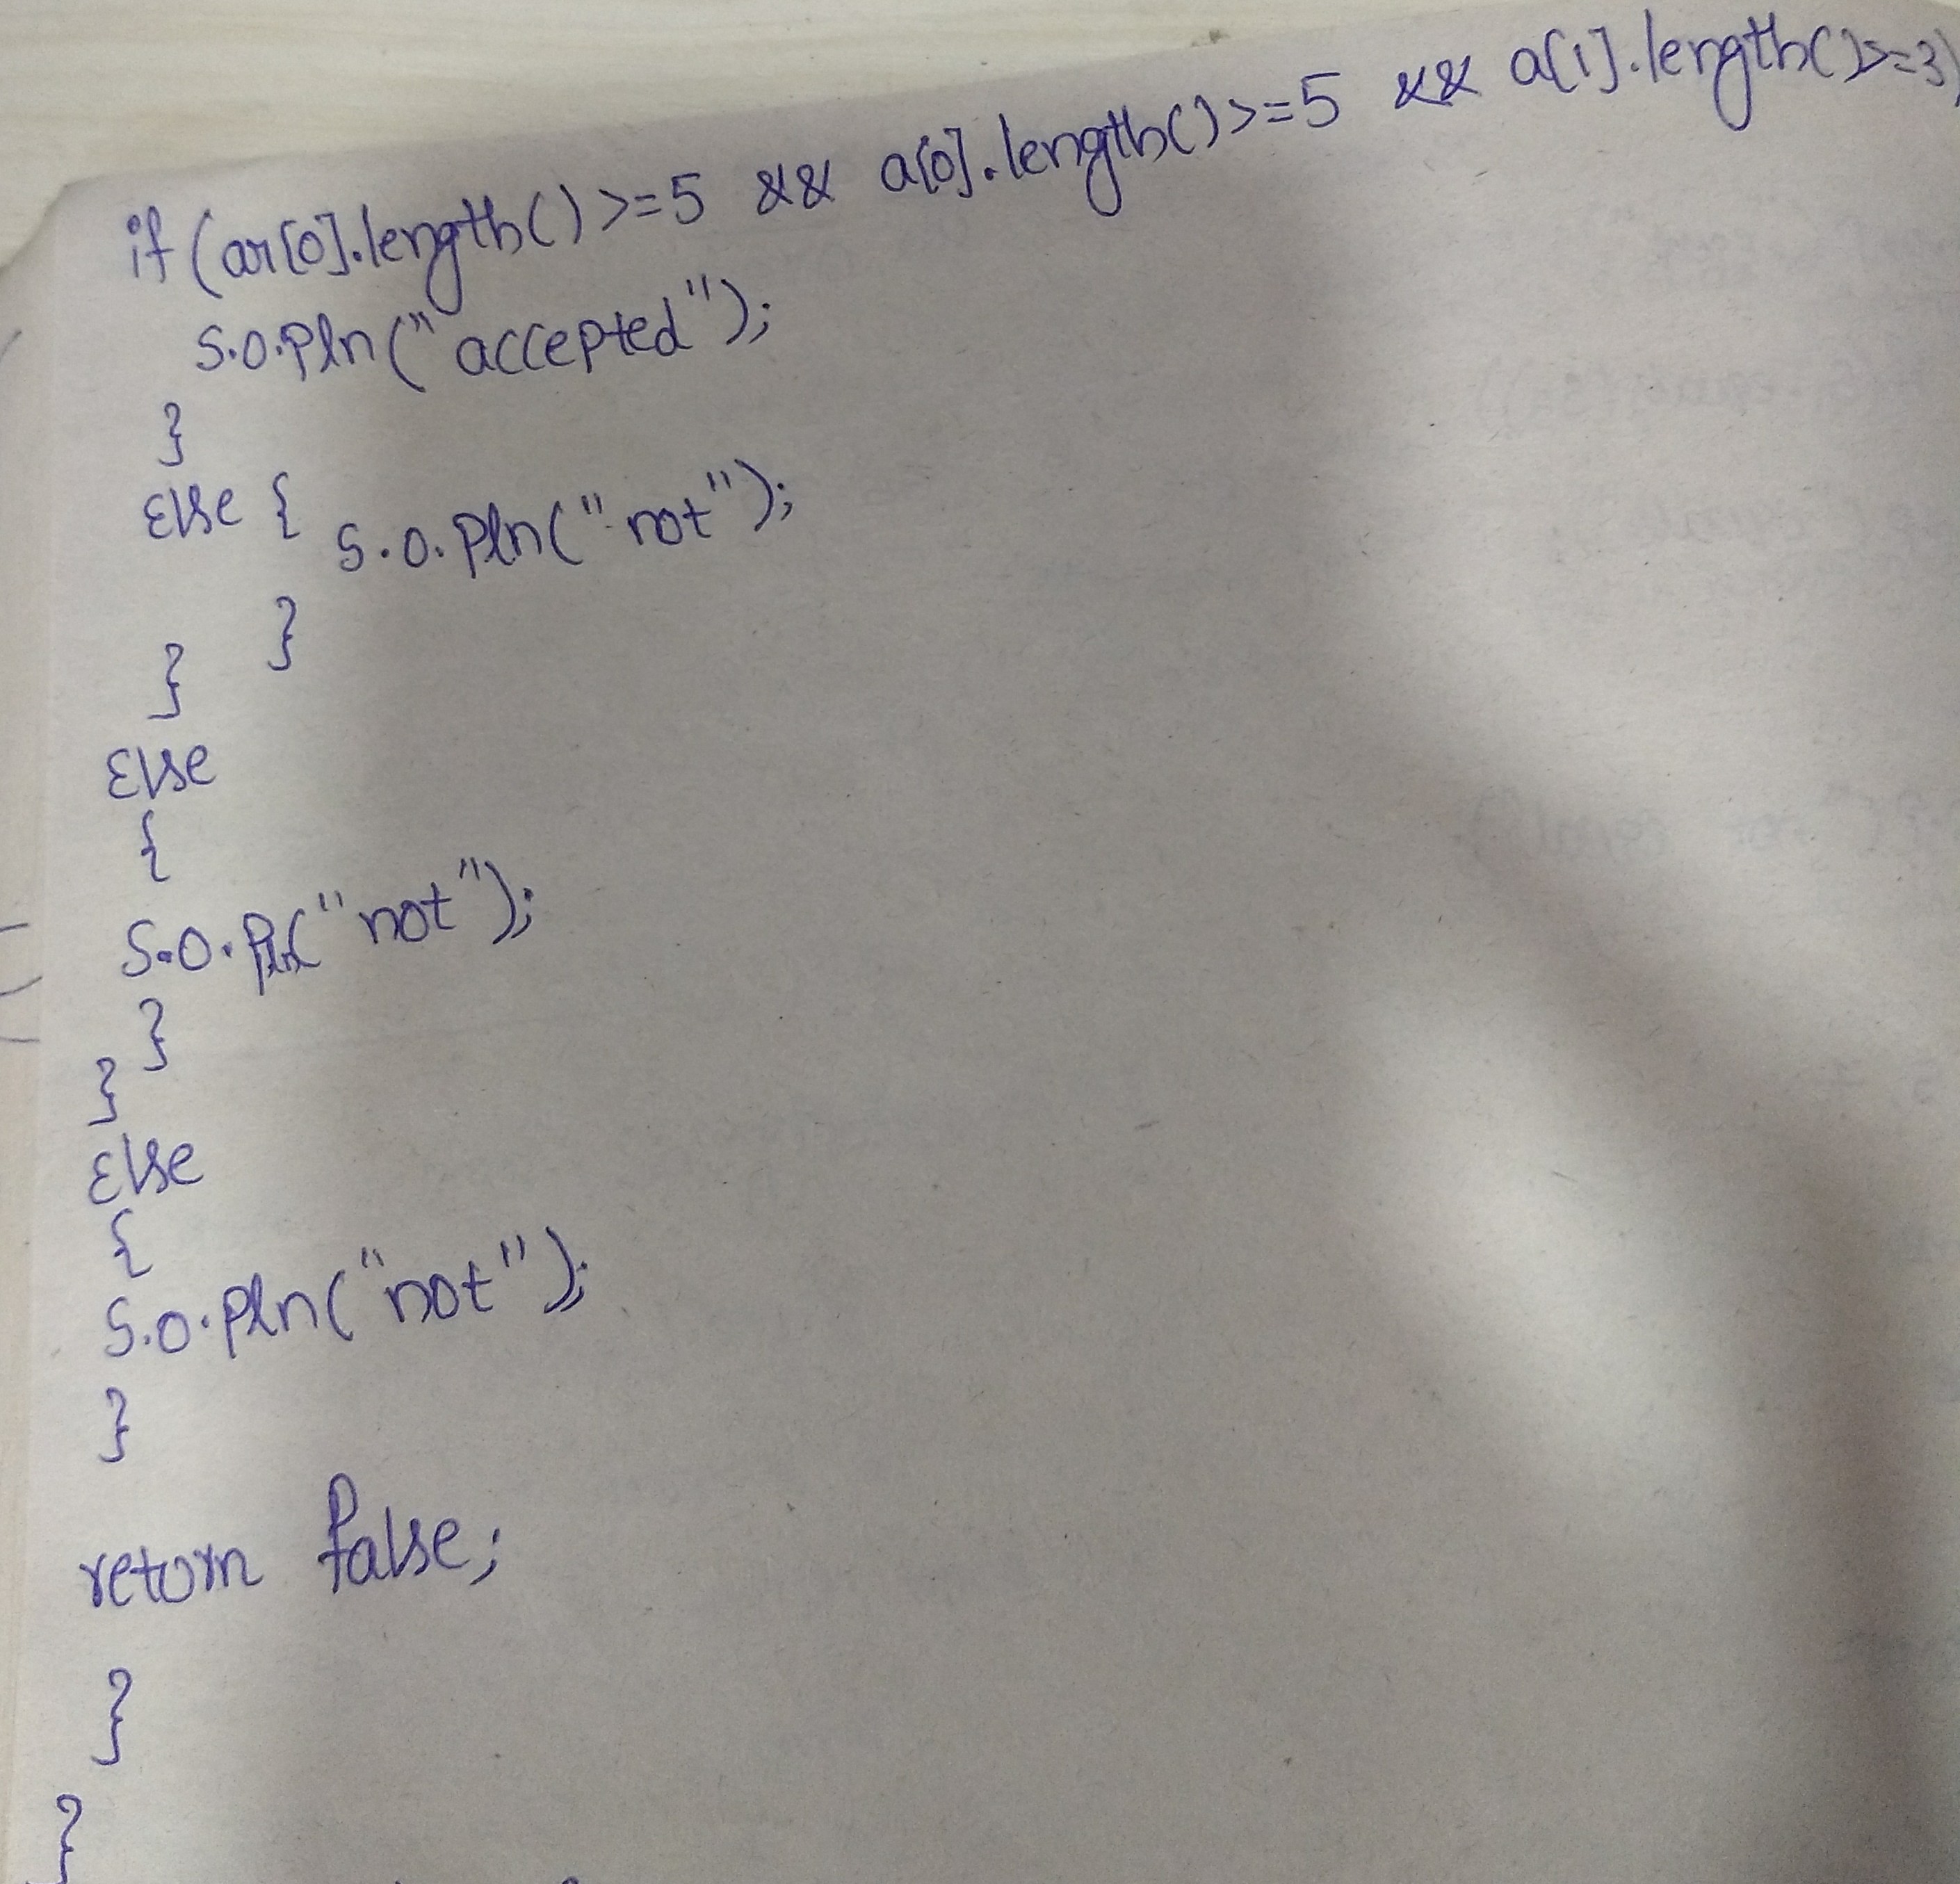 if (ar[0].length() >=5 && a[0].length() >=5 && a[1].length()>=3)
S.O.Pln("accepted");
}
Else { S.O.Pln("not");
}
}
Else
{
S.O.Pln("not");
}
}
Else
{
S.O.Pln("not");
}
return false;
}
}